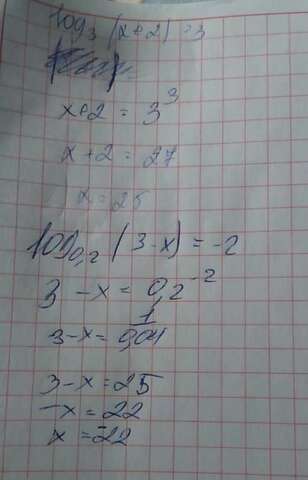 log₃(x+2) = 3
x+2 = 3³
x+2 = 27
x = 25
log₀,₂(3-x) = -2
3-x = 0,2⁻²
3-x = 1/0,04
3-x = 25
-x = 22
x = -22